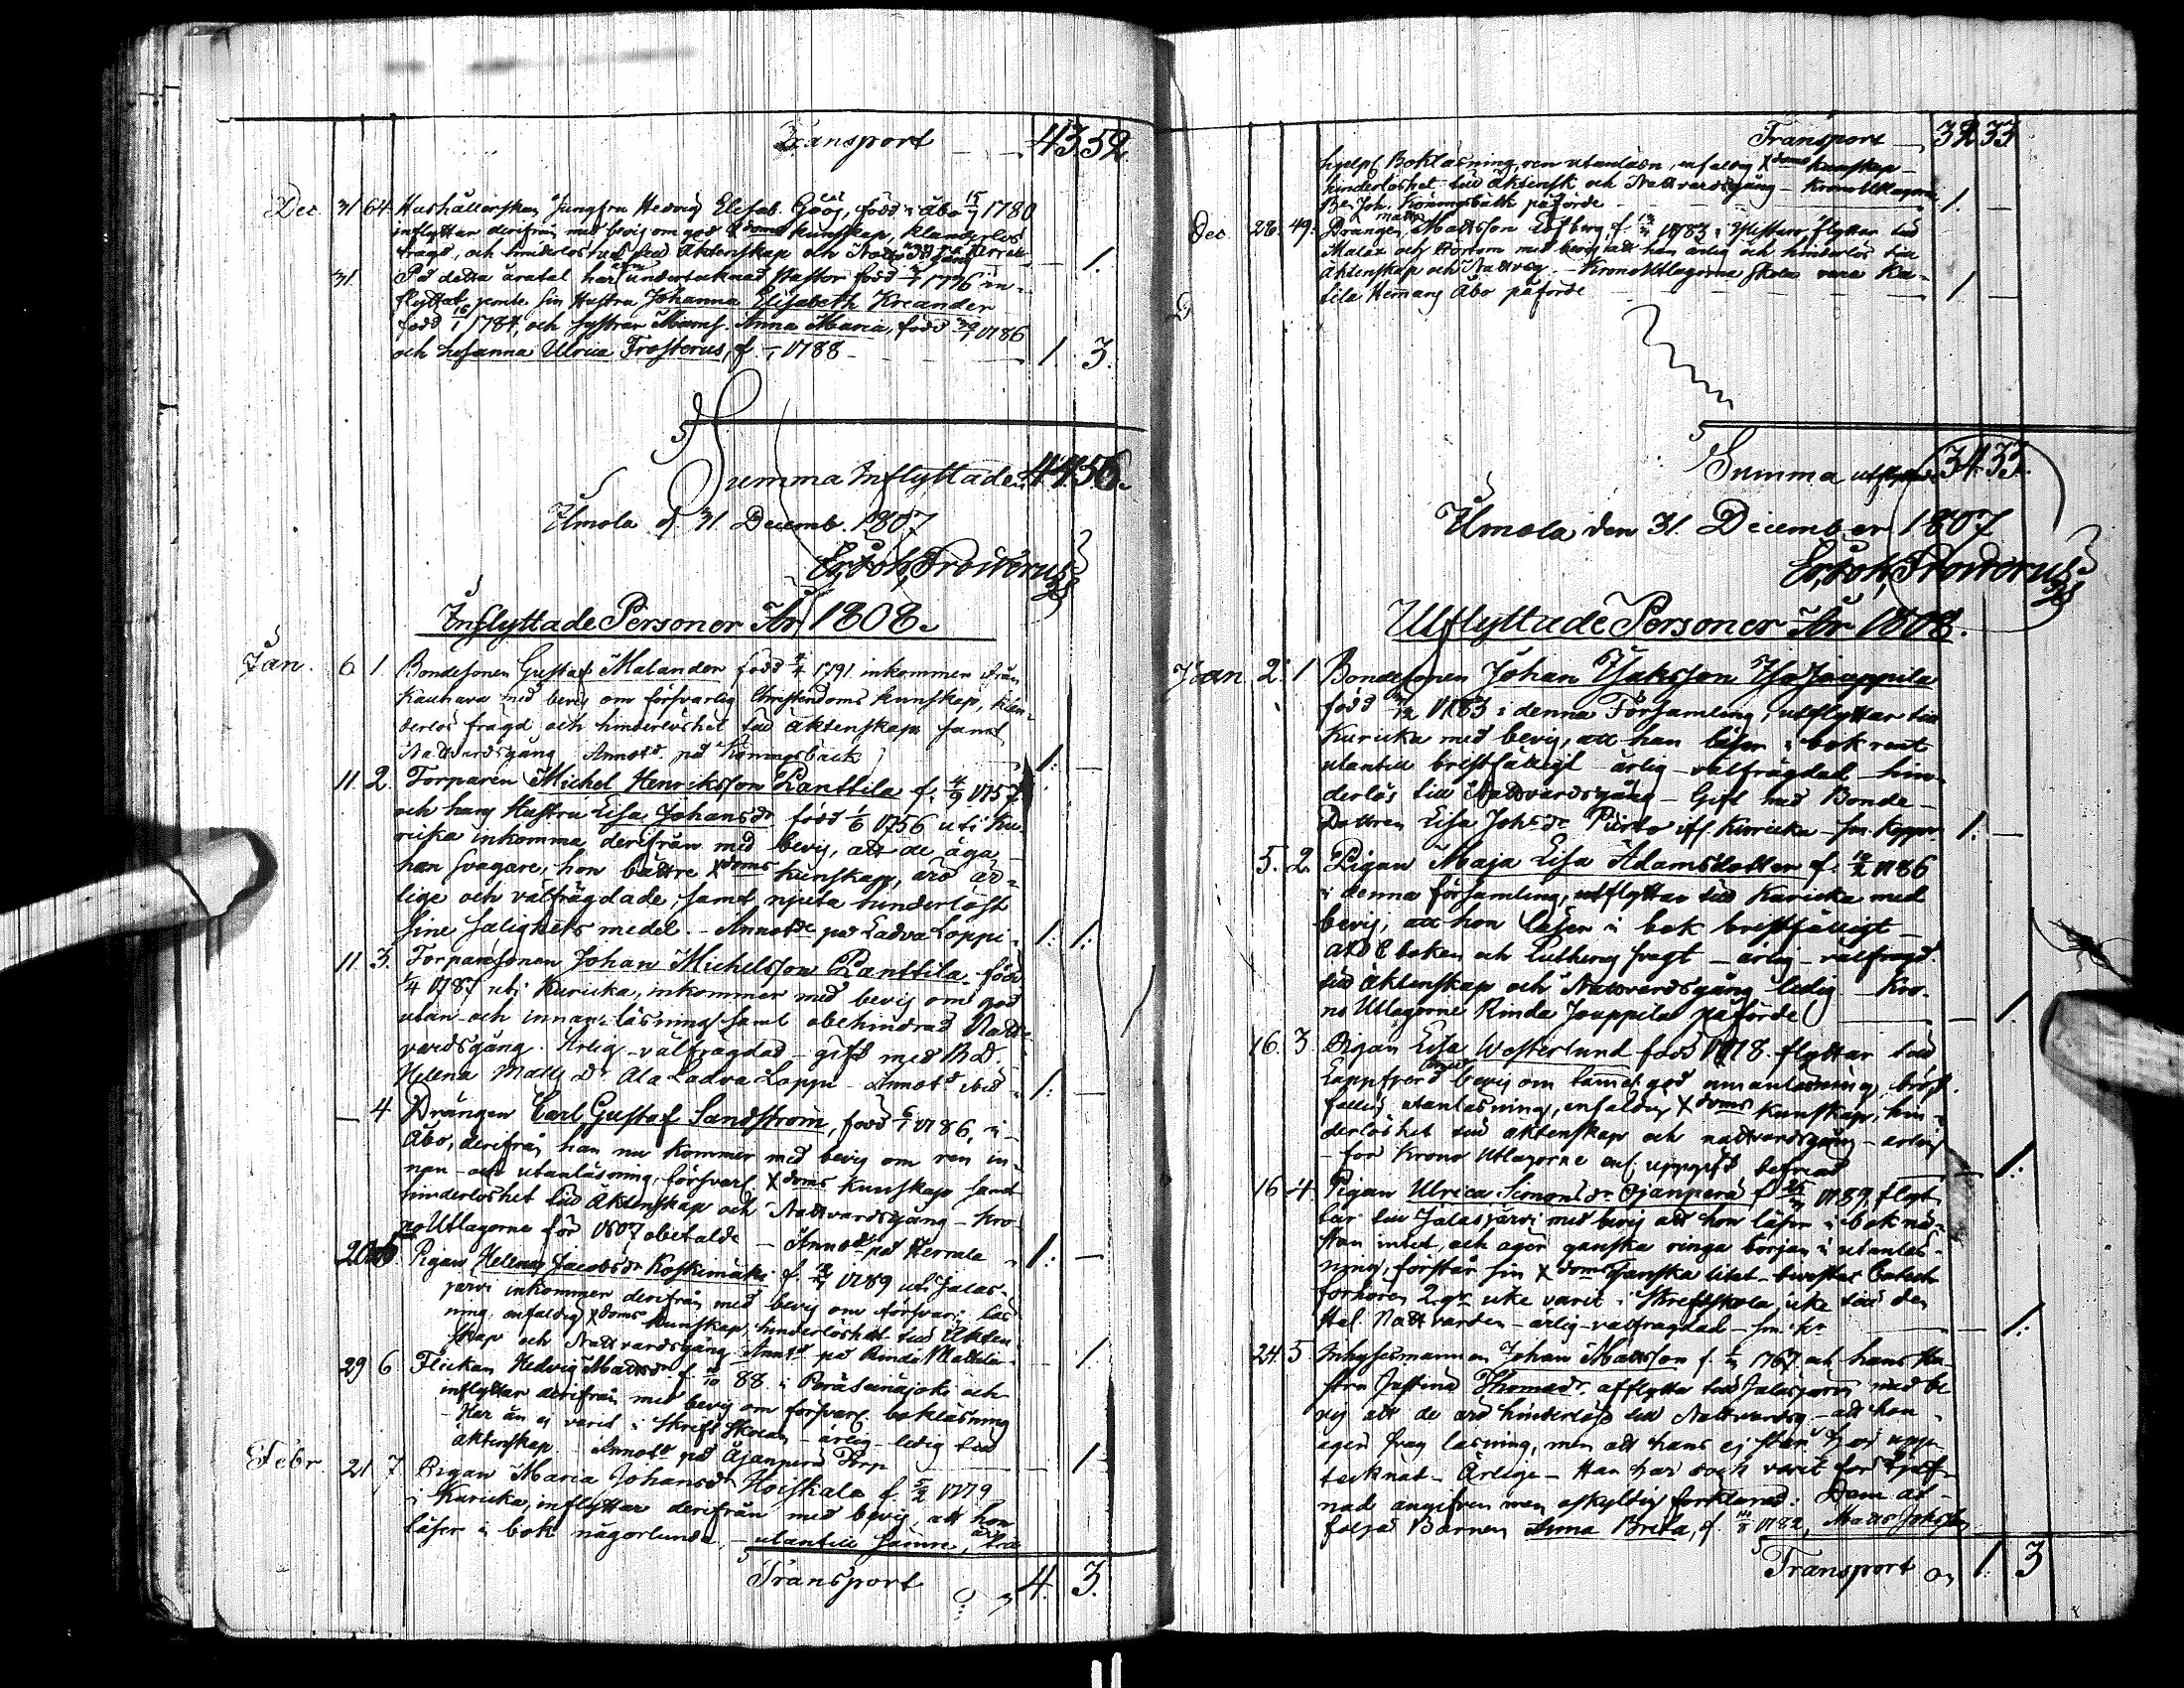 Transport 43 52
Dec. 31 64 Hushållerskan Jungfru Hedvig Elisab. född i Åbo 15/9 1780
inflyttar derifrån med bevis om god Xdoms kunskap, klanderlös
frägd, och hinderlöshet till Äktenskap och
31. På detta åratal har undertecknad Pastor född 1776 in-
flyttat jemte sin Hustru Johanna Elisabeth Kreander
född 16/1 1784, och systrar Mams. Anna Maria, född 1786
och Susanna Ulrica Frosterus, f. 1788 1. 3.
Summa Inflyttade 44 56.
Ilmola d. 31. Decemb. 1807
Er. Joh. Frosterus
Inflyttade Personer År 1808.
Jan. 6 1. Bondesonen Gustaf Malander född 4/4 1791 inkommer från
Kauhava med bevis om försvarlig Christendoms kunskap, klan-
derlös frägd och hinderlöshet till äktenskap samt
Nattvardsgång Annotd. på Könnigsbäck 1: —
11. 2. Torparen Michel Henriksson Panttila f. 4/9 1757
och hans Hustru Lisa Johansdr född 1/6 1756 uti Ku-
ricka inkomma derifrån med bevis, att de äga
han svagare, hon bättre Xdoms kunskap, äro är-
lige och välfrägdade, samt njuta hinderlöst
sine salighets medel. - Annotde på Ladva Loppi 1: 1:
11. 3. Torparesonen Johan Michelsson Panttila född
1/4 1787 uti Kuricka, inkommer med bevis om god
utan- och innan-läsning samt obehindrad Natt-
vardsgång. Ärlig - välfrägdad - gift med B.D.
Helena Matts Dr Ala Ladva Loppi - Annotd ibid 1: —
— 4 Drängen Carl Gustaf Sandström, född 6/1 1786, i
Åbo, derifrån han nu kommer med bevis om ren in-
nan- och utanläsning, försvarl. Xdoms kunskap samt
hinderlöshet till Äktenskap och Nattvardsgång - Kro-
no Utlagorne för 1807 obetalde - Annotd på Herrala 1: —
20 5. Pigan Helena Jacobsdr Koskimäki f. 1789 uti Jalas-
järvi inkommer derifrån med bevis om försvarl. läs-
ning, enfaldig Xdoms kunskap, hinderlöshet till Äkten-
skap och Nattvardsgång Annotd på Rinda Mattila — 1
29 6 Flickan Hedvig Mattsdr. f. 88. i Peräseinäjoki och
inflyttar derifrån med bevis om försvarl. bokläsning
- Har än ej varit i Skrift Skolan - ärlig - ledig till
äktenskap - Annotd på Äjänperä Torp — 1
Febr. 21 7 Pigan Maria Johansdr Koiskala f. 5/2 1779
i Kuricka, inflyttar derifrån med bevis, att hon
läser i bok någorlunda, - utantill sämre,
Transport 4. 3.
Transport 32 33
hjelpl. Bokläsning, ren utanläsn, enfaldig Xdoms kunskap -
hinderlöshet till Äktensk och Nattvardsgång - Krono Utlagorne
Be. Joh. Könnigsbäck påförde 1. —
Dec. 28. 49: Drängen Matts Mattsson Löfberg f. 1783 i flyttar till
Malax och Pörtom med bevis att han ärlig och hinderlös till
Äktenskap och Nattvsg. - Krono Utlagorna skola vara Ka-
tila Hemmans Åbo påförde 1 —
Summa utflyttade 34 33.
Ilmola den 31. December 1807
Er. Joh. Frosterus
Utflyttade Personer År 1808.
Jan. 2: 1 Bondesonen Johan Isaksson Iso Jouppila
född 1783 i denna Församling, utflyttar till
Kuricka med bevis, att han läser i bok rent
utantill bristfälligt - ärlig - välfrägdad - hin-
derlös till Nattvardsgång - Gift med Bonde-
Dottren Lisa Johsdr Pirto ifr. Kuricka 1: —
5. 2. Pigan Maja Lisa Adamsdotter f. 1786
i denna församling, utflyttar till Kuricka med
bevis, att hon läser i bok bristfälligt -
ABC boken och Lutheri svagt - ärlig - välfrägd.
till Äktenskap och Nattvardsgång ledig - Kro-
no Utlagorne Rinda Jouppila påförde — 1.
16. 3 Pigan Lisa Westerlund född 1778 flyttar till
Lappfjerd bevis om god innanläsning, brist-
fällig utanläsning, enfaldig Xdoms kunskap, hin-
derlöshet till äktenskap och nattvardsgång - ärlig
- för Krono Utlagorne enl. uppgift befriad — 1:
16 4. Pigan Ulrica Simonsdr Ojanperä f. 1789, flyt-
tar till Jalasjärvi med bevis att hon läser i bok nä-
stan intet och äger ganska ringa början i utanläs-
ning, förstår sin Xdom ganska litet - bivistat Catech.
förhören 2 gr icke varit i Skriftskola, icke till den
Hel. Nattvarden - ärlig - välfrägdad — 1:
24. 5 Inhysesmannen Johan Mattsson f. 1767 och hans Hu-
stru Justina Thomasdr. afflytta till Jalasjärvi med be-
vis att de äro hinderlöse till Nattvardsg. - att hon
äger svag läsning, men att hans ej står här upp-
tecknat - Ärlige - Han har dock varit för tjuf-
nad angifven men oskyldig förklarad: Dem åt-
följa Barnen Anna Brita, f. 1782, Matts Johsson
Transport 1. 3